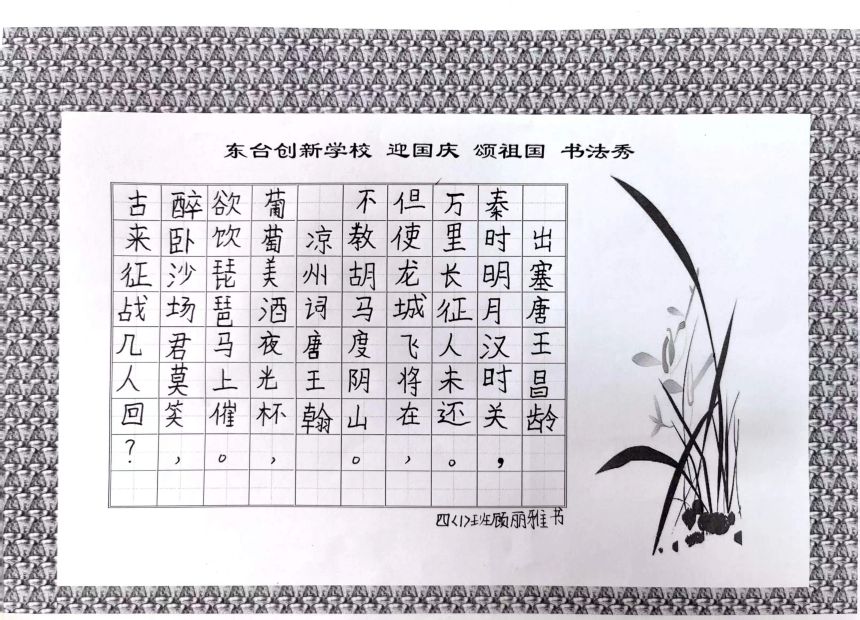 东台创新学校 迎国庆 颂祖国 书法秀
出塞唐王昌龄
秦时明月汉时关，
万里长征人未还。
但使龙城飞将在，
不教胡马度阴山。
凉州词唐王翰
葡萄美酒夜光杯，
欲饮琵琶马上催。
醉卧沙场君莫笑，
古来征战几人回？
四〈1〉班顾丽雅书